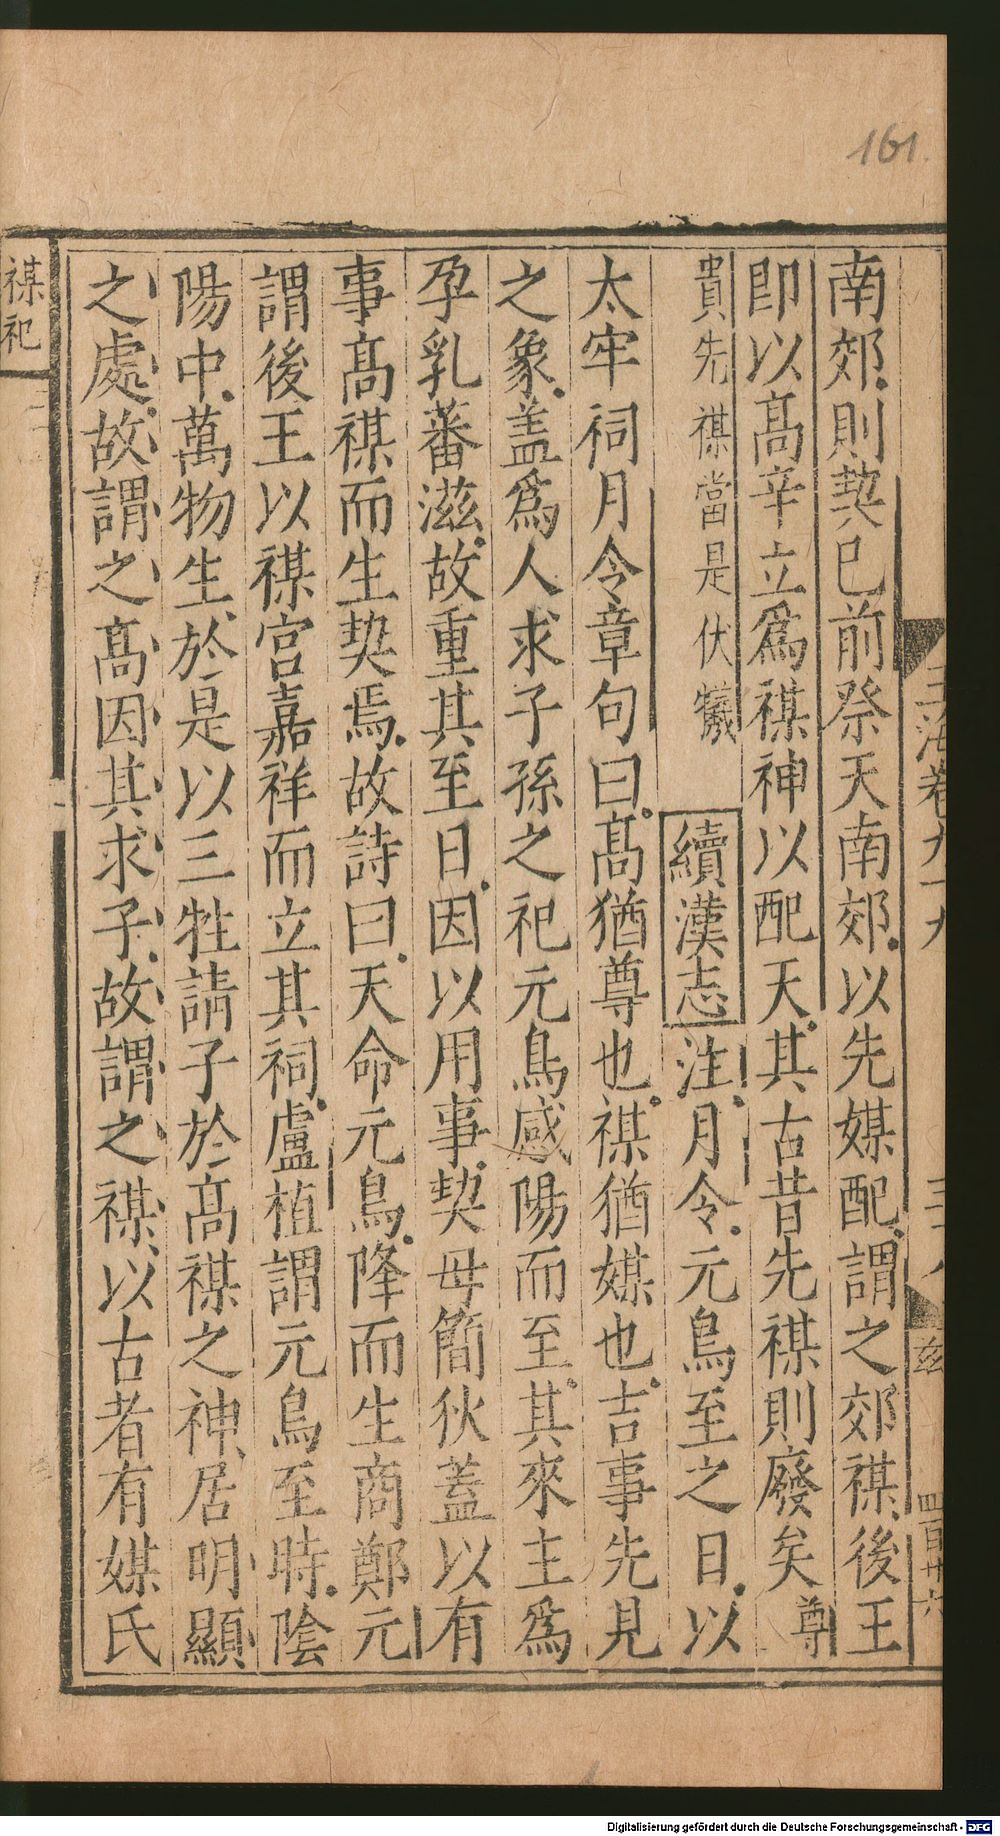 161.
玉海卷九十九
三十八
兹
四百廿六
南郊則契已前祭天南郊以先媒配謂之郊禖後王
即以髙辛立爲禖神以配天其古昔先禖則廢矣尊
貴先禖當是伏犧續漢志注月令元鳥至之日以
太牢祠月令章句曰髙猶尊也禖猶媒也吉事先見
之象盖爲人求子孫之祀元鳥感陽而至其來主爲
孕乳蕃滋故重其至日因以用事契母簡狄蓋以有
事髙禖而生契焉故詩曰天命元鳥降而生商鄭元
謂後王以禖宫嘉祥而立其祠盧植謂元鳥至時陰
陽中萬物生於是以三牲請子於髙禖之神居明顯
之處故謂之髙因其求子故謂之禖以古者有媒氏
禖祀
Digitalisierung gefördert durch die Deutsche Forschungsgemeinschaft - DFG